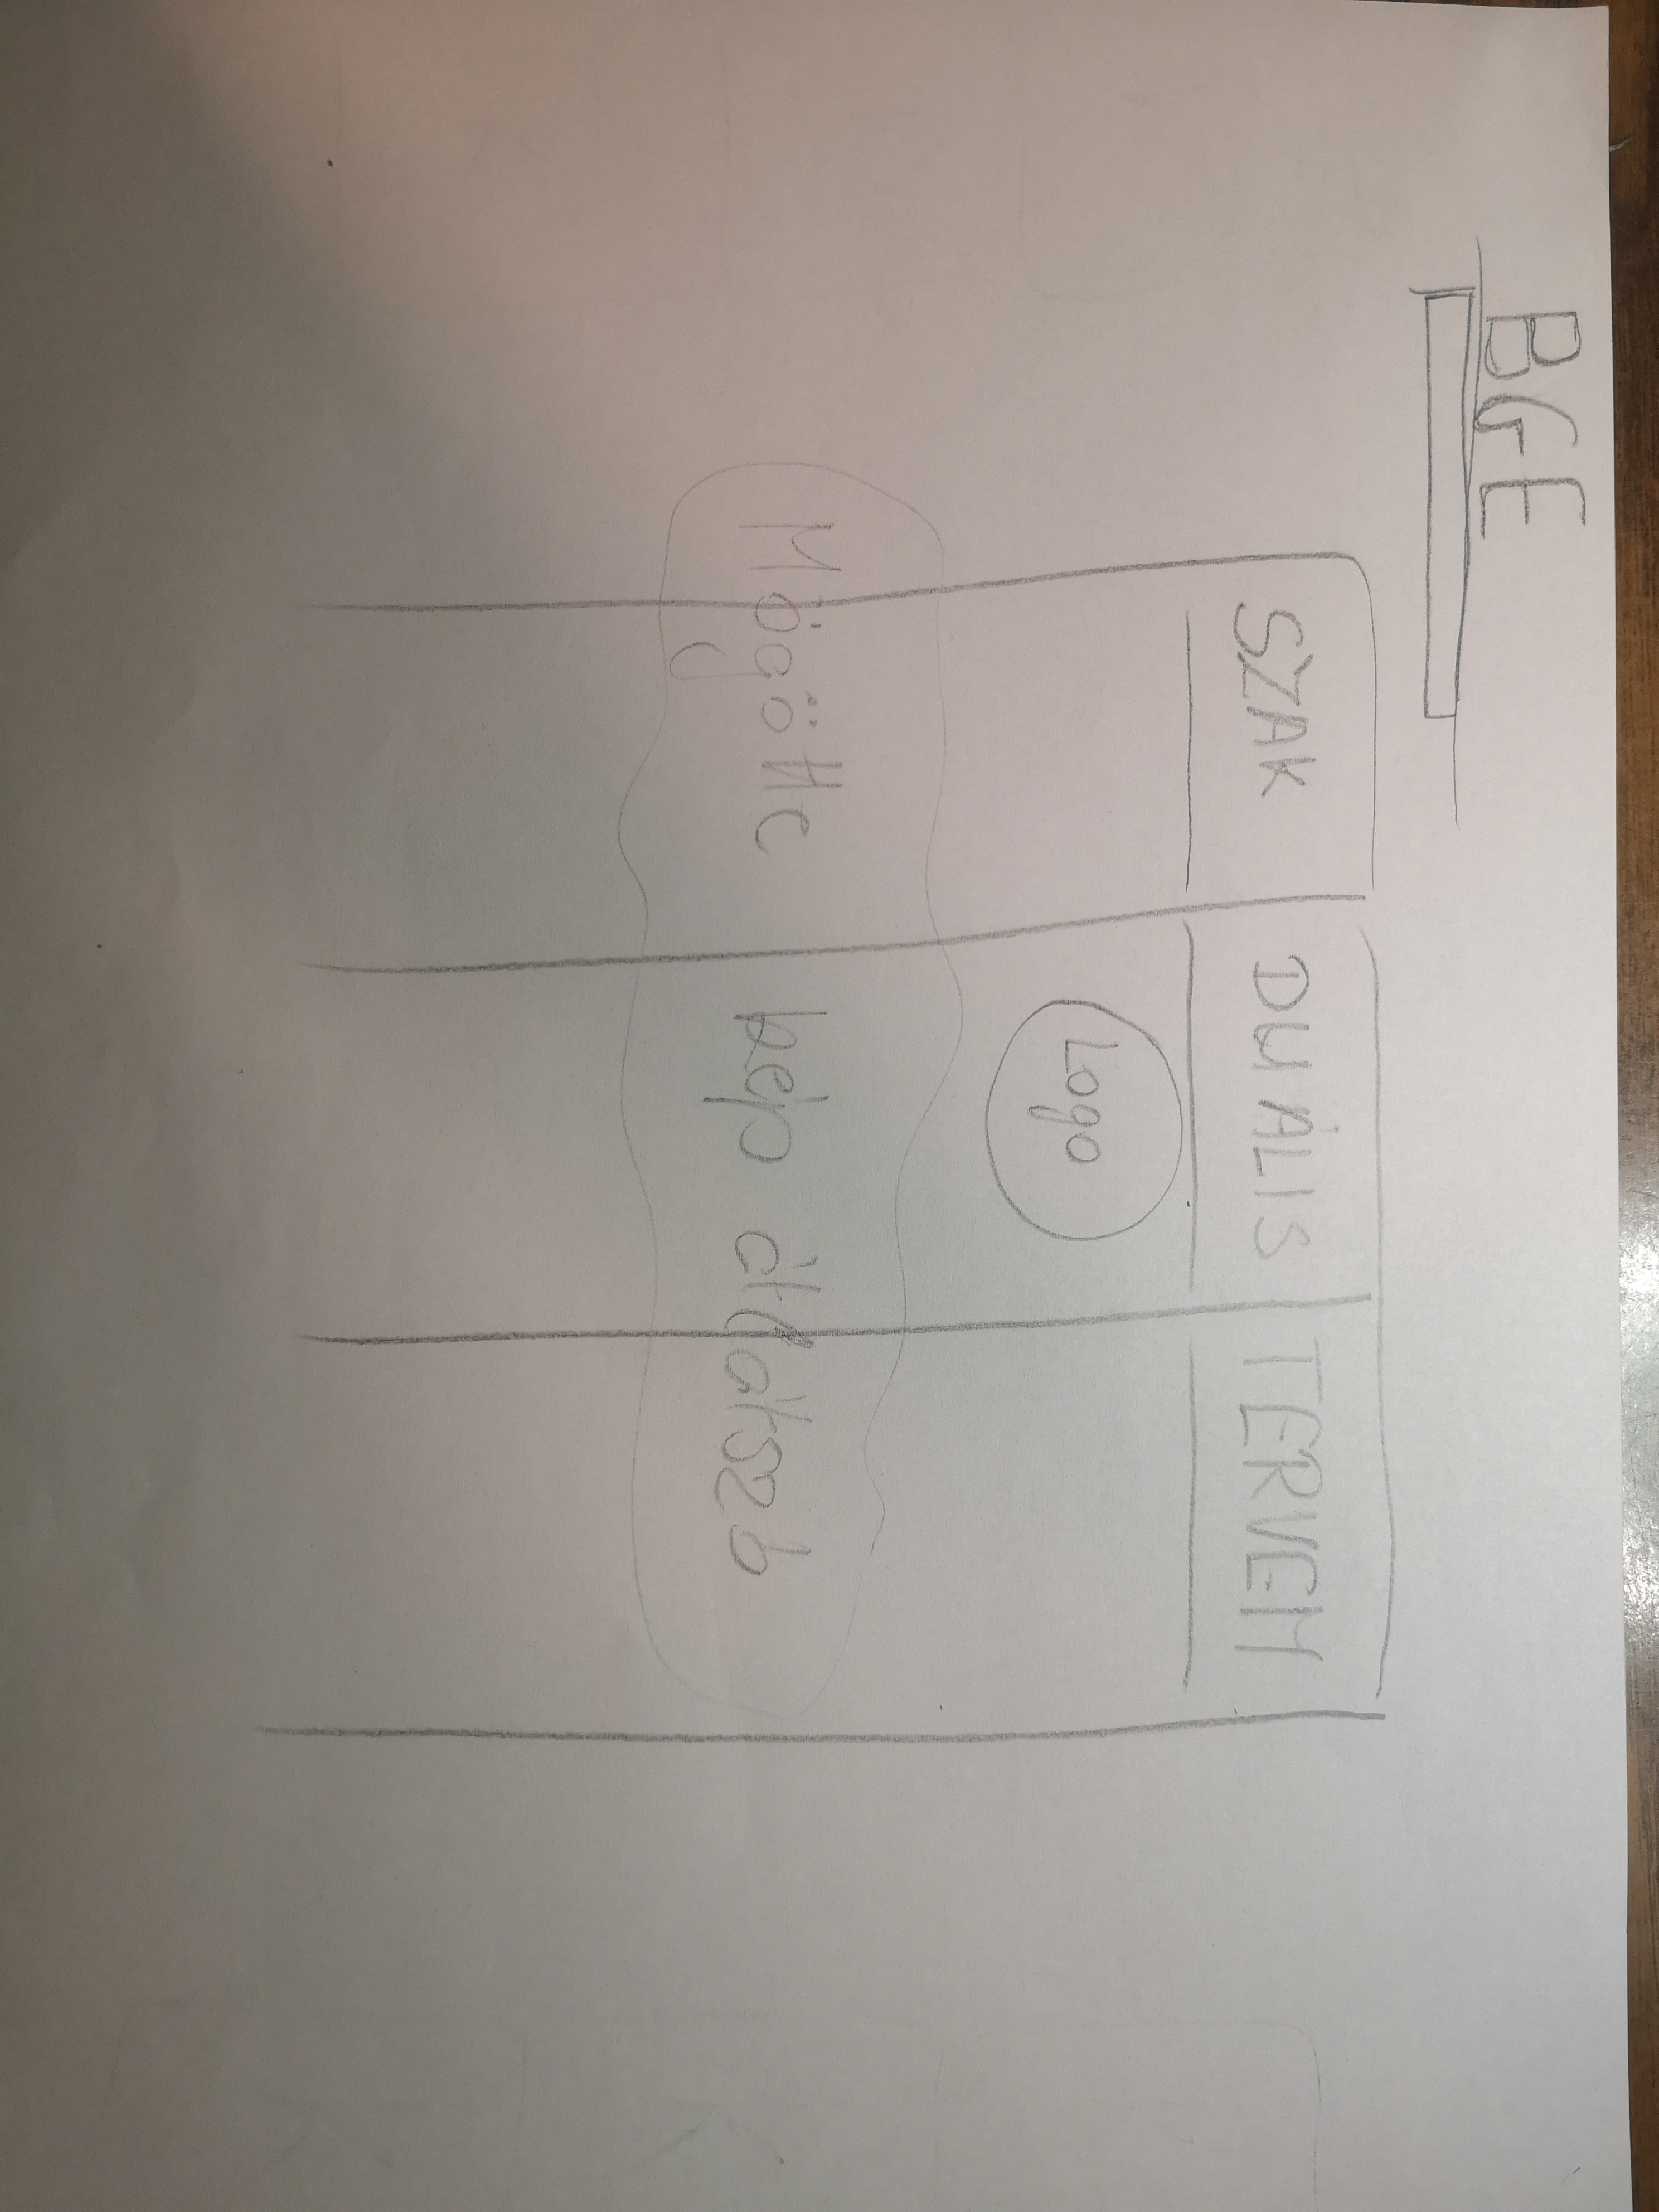 BGE
SZAK DUÁLIS TERVEM
Logo
Mögötte kép átlátszó